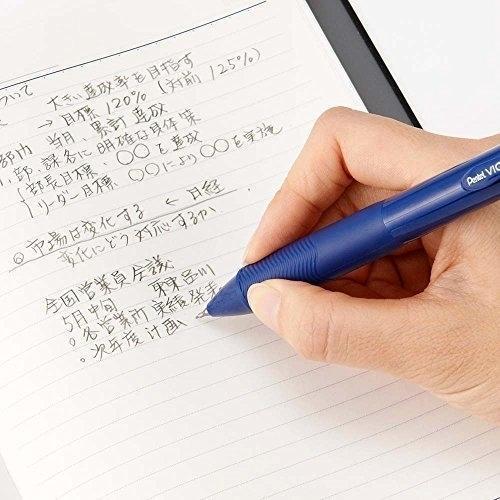 ついて
大きい達成率を目指す
→ 目標 120% (対前 125%)
当月 累計 達成
部、課名に明確な具体味
部長目標、○○を達成
リーダー目標 ○○により○○を実施
◎市場は変化する ← 日経
変化にどう対応するか
全国営業員会議
5月中旬 東京品川
○各営業所 実績発表
○次年度計画
Pentel VIC